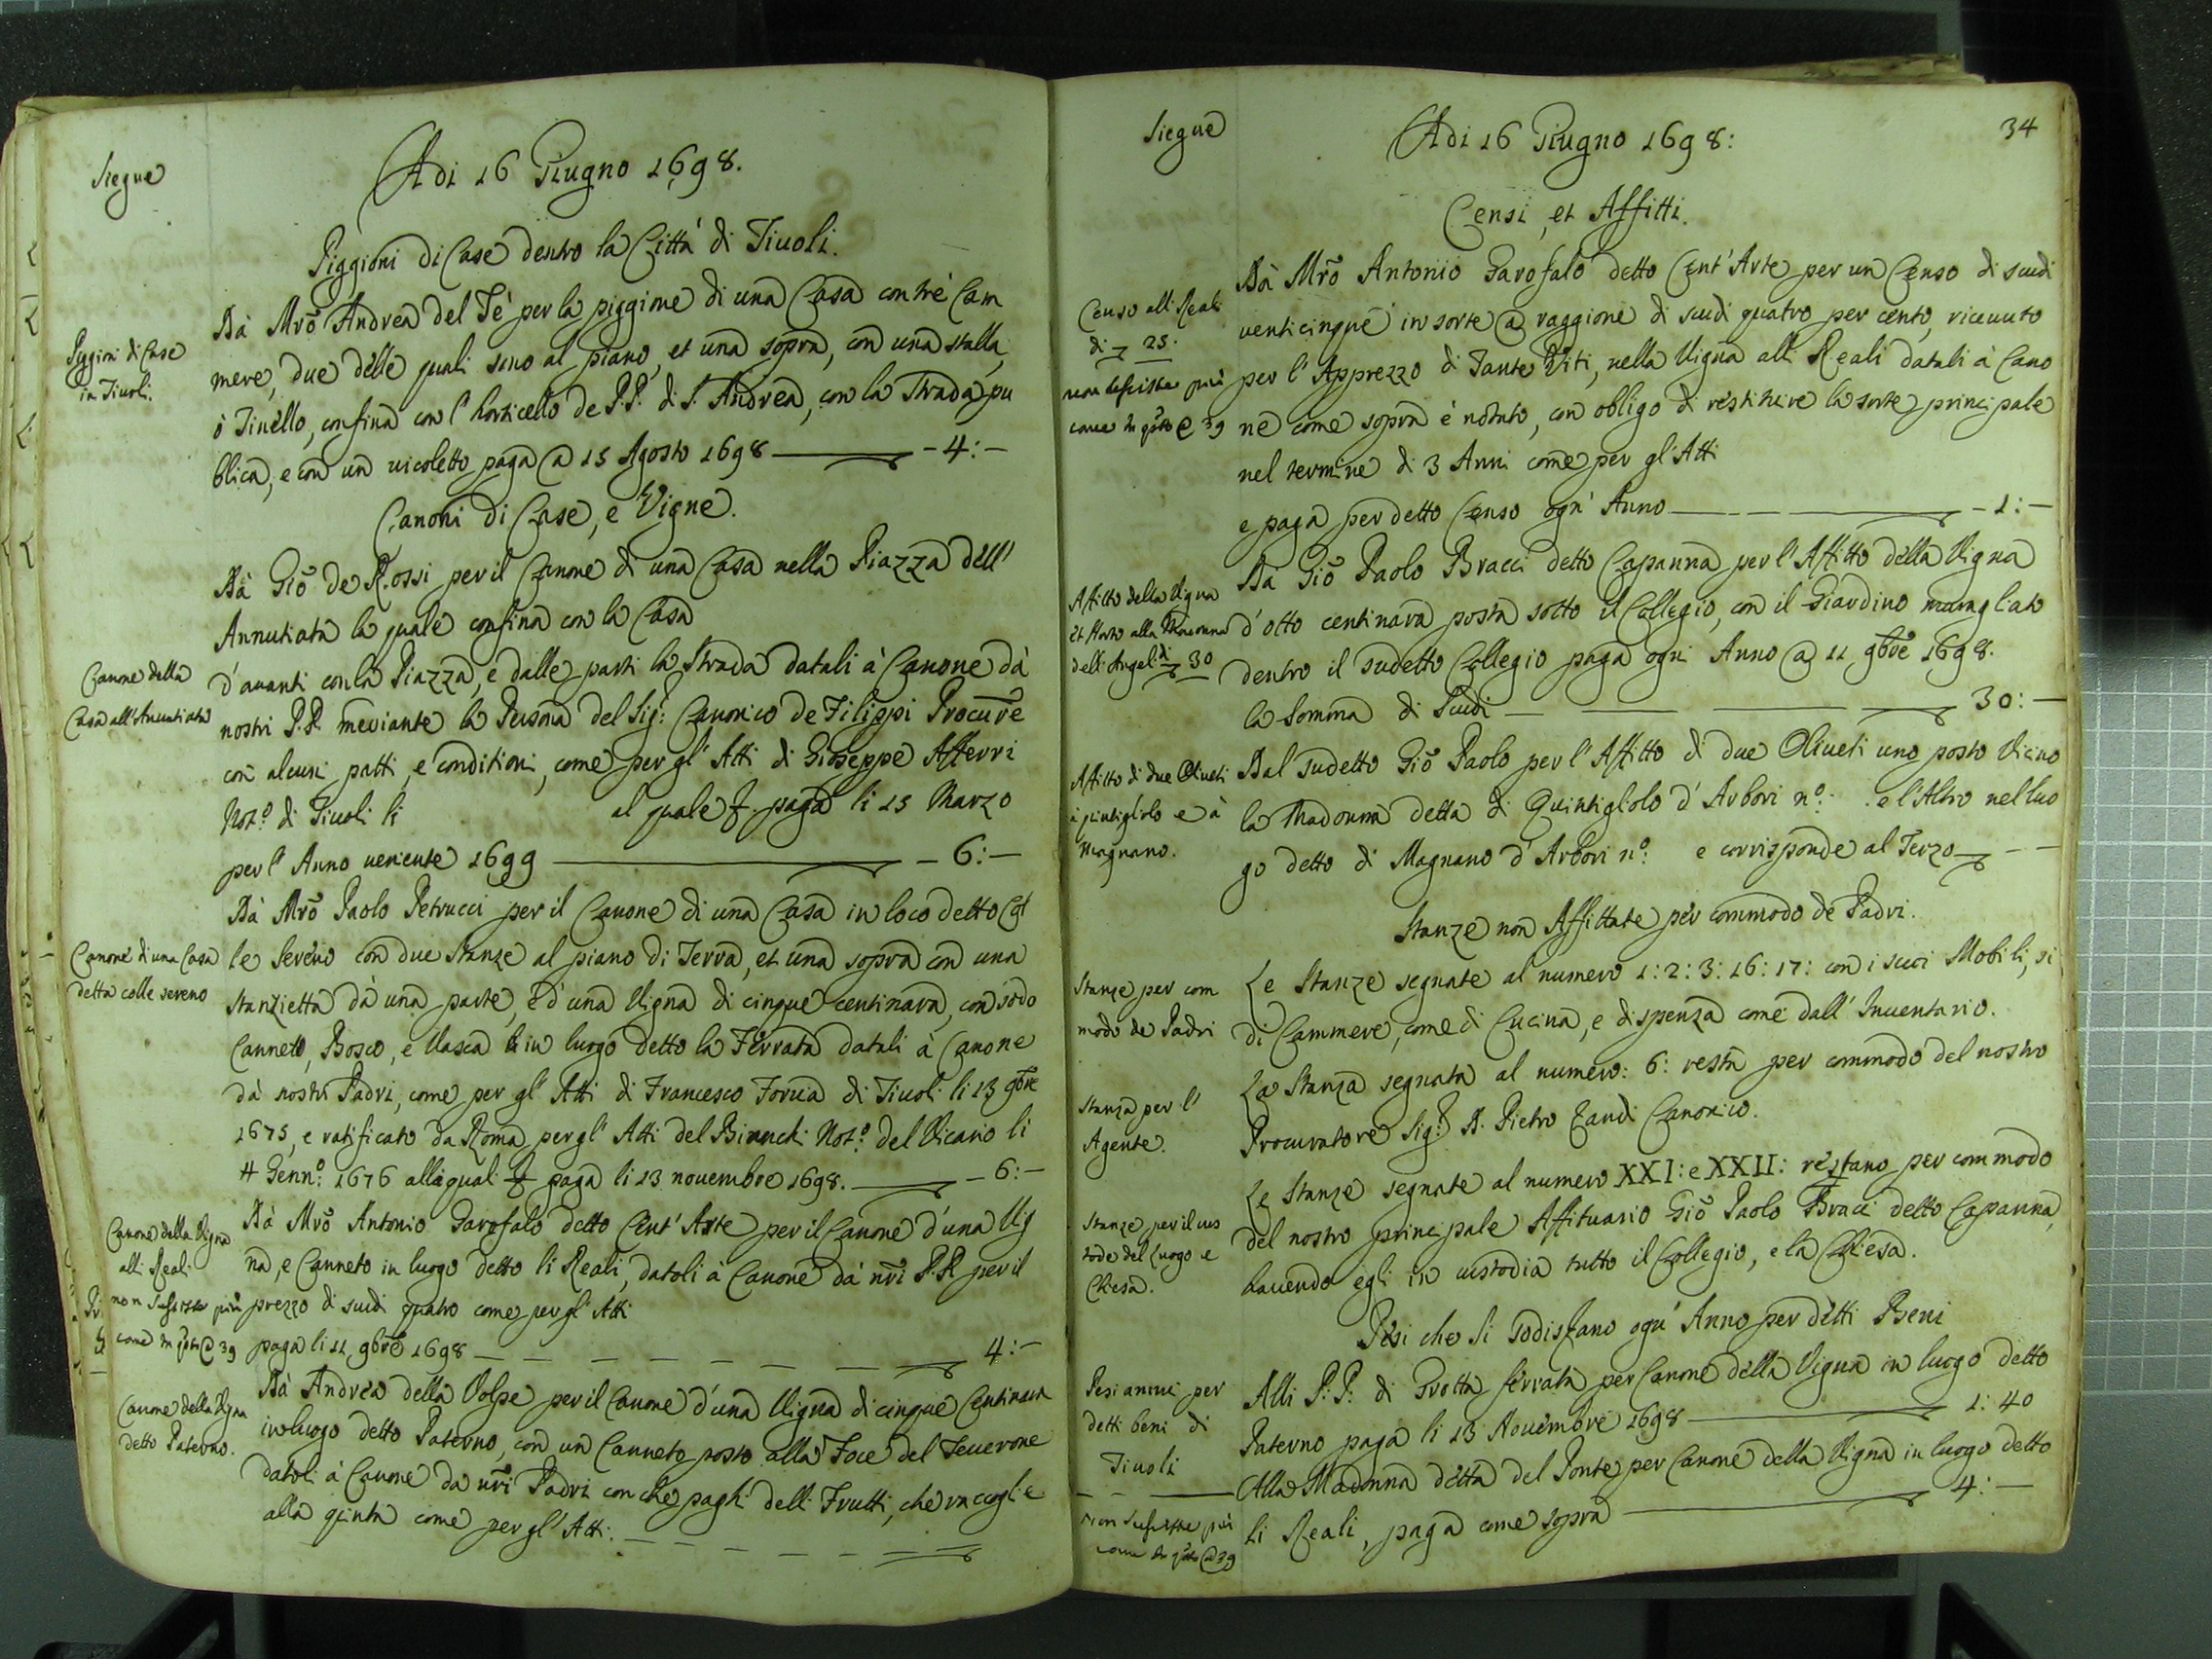 Siegue
Adi 16 Giugno 1698.
Piggioni di Case dentro la Città di Tiuoli.
Piggioni di Case
in Tiuoli.
Dà Mrõ Andrea del Tè per la piggione di una Casa con trè Cam
mere, due delle quali sono al piano, et una sopra, con una stalla,
ò Tinello, confina con l'horticello de P.P. di S. Andrea, con la Strada pu
blica, e con un uicoletto paga a 15 Agosto 1698 — 4: —
Canoni di Case, e Vigne.
Dà Giõ de Rossi per il Canone di una Casa nella Piazza dell'
Annutiata la quale confina con la Casa
Canone della
Casa all'Anuntiata
d'auanti con la Piazza, e dalle parti la Strada datali à Canone dà
nostri P.P. meviante la Persona del Sig: Canonico de Filippi Procure
con alcuni patti, e conditioni, come per gl'Atti di Gioseppe Afferri
Not.º di Tiuoli li al quale paga li 25 Marzo
per l'Anno veniente 1699 — 6: —
Dà Mrõ Paolo Petrucci per il Canone di una Casa in loco detto Col
Canone di una Casa
detta colle sereno
le Sereno con due stanze al piano di Terra, et una sopra con una
stanzietta dà una parte, e d'una Vigna di cinque centinara, con sodo
Canneto, Bosco, e Vasca in luogo detto la Ferrata datali à Canone
dà nostri Padri, come per gl'Atti di Francesco Foruia di Tiuoli li 13 9bre
1675, e ratificato da Roma per gl'Atti del Bianchi Not.º del Vicario li
4 Genn.º 1676 alli quali paga li 13 nouembre 1698. — 6: —
Canone della Vigna
alli Reali
non sussiste più
come in qsto @ 39
Dà Mrõ Antonio Garofalo detto Cent'Arte per il Canone d'una Vig
na, e Canneto in luogo detto li Reali, datoli à Canone dà nri P.P. per il
prezzo di scudi quatro come per gl'Atti
paga li 11 9bre 1698 — 4: —
Canone della Vigna
detto Paterno.
Dà Andrea della Volpe per il Canone d'una Vigna di cinque Centinara
in luogo detto Paterno, con un Canneto posto alla Foce del Teuerone
datoli à Canone da nri Padri con che paghi delli Frutti, che racoglie
alla quinta come per gl'Atti. —
Siegue
Adi 16 Giugno 1698:
34
Censi, et Affitti.
Censo alli Reali
di 25.
non sussiste più
come in qsto @ 39
Dà Mrõ Antonio Garofalo detto Cent'Arte per un Censo di scudi
venticinque in sorte a raggione di scudi quatro per cento, riceuuto
per l'Apprezzo di Tante Viti, nella Vigna alli Reali datali à Cano
ne come sopra è notato, con obligo di restituire la sorte principale
nel termine di 3 Anni come per gl'Atti
e paga per detto Censo ogn'Anno — 1: —
Affitto della Vigna
et Horto alla Madonna
dell'Angeli di 30
Da Giõ Paolo Bracci detto Capanna per l'Affitto della Vigna
d'otto centinara posta sotto il Collegio, con il Giardino muragliato
dentro il sudetto Collegio paga ogni Anno a 11 9bre 1698.
la Somma di Scudi — 30: —
Affitto di due Oliueti
à quintigliolo e à
Magnano.
Dal sudetto Giõ Paolo per l'Affitto di due Oliueti uno posto Vicino
la Madonna detta di Quintigliolo d'Arbori nº: e l'Altro nel luo
go detto di Magnano d'Arbori nº: e corrisponde al Terzo —
Stanze non Affittate per commodo de Padri.
Stanze per com
modo de Padri
Le Stanze segnate al numero 1: 2: 3: 16: 17: con i suoi Mobili, si
di Cammere, come di Cucina, e dispenza come dall'Inuentario.
Stanza per l'
Agente.
La Stanza segnata al numero: 6: resta per commodo del nostro
Procuratore Sig: D. Pietro Zandi Canonico.
Stanze per il cus
tode del Luogo e
Chiesa.
Le Stanze segnate al numero XXI: e XXII: restano per commodo
del nostro principale Affituario Giõ Paolo Bracci detto Capanna,
hauendo egli in custodia tutto il Collegio, e la Chiesa.
Pesi che si sodisfano ogn'Anno per detti Beni
Pesi annui per
detti beni di
Tiuoli
Alli P.P. di Grotta ferrata per Canone della Vigna in luogo detto
Paterno paga li 13 Nouembre 1698 — 1: 40
non sussiste più
come in qsto @ 39
Alla Madonna detta del Ponte per Canone della Vigna in luogo detto
li Reali, paga come sopra — 4: —